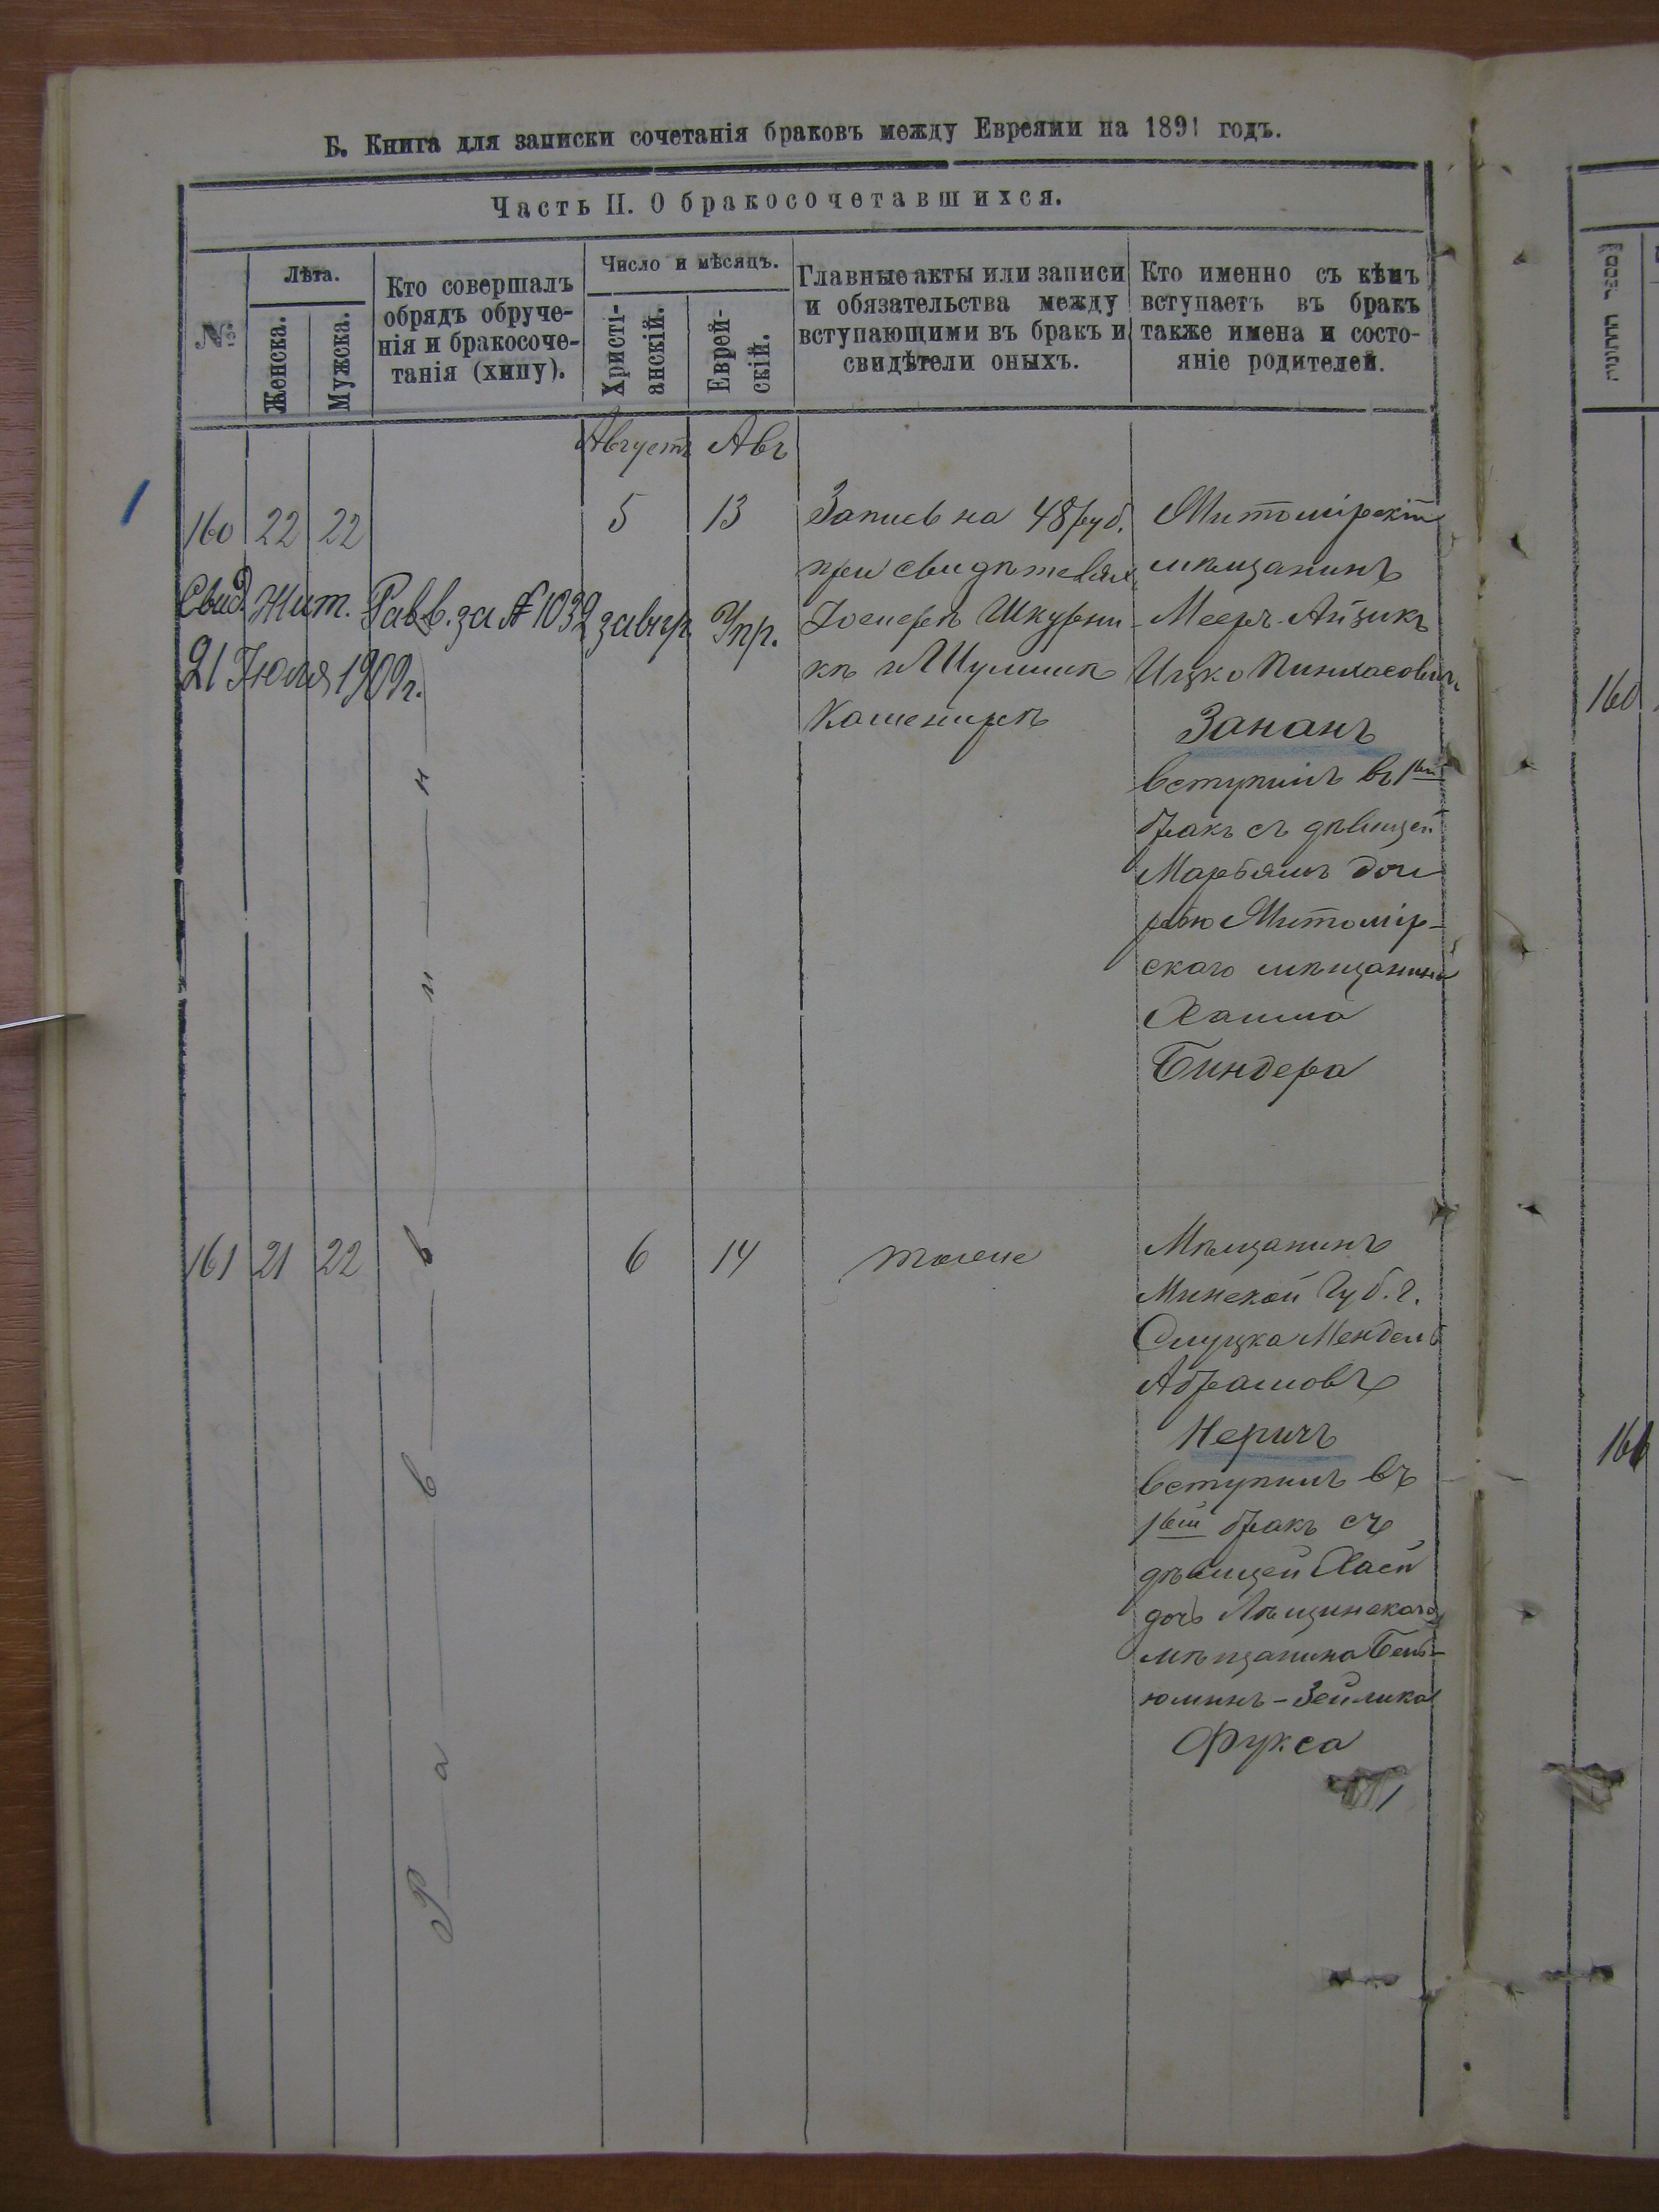 Б. Книга для записки сочетанія браковъ между Евреями на 1891 годъ.
Часть II. О бракосочетавшихся.
№
Лѣта.
Женска.
Мужска.
Кто совершалъ
обрядъ обруче-
нія и бракосоче-
танія (хипу).
Число и мѣсяцъ.
Христі-
анскій.
Еврей-
скій.
Главные акты или записи
и обязательства между
вступающими въ бракъ и
свидѣтели оныхъ.
Кто именно съ кѣмъ
вступаетъ въ бракъ
также имена и состо-
яніе родителей.
Августъ Авъ
160 22 22
5 13
Запись на 48 руб.
при свидѣтеляхъ
Іосифѣ Шкурни-
кѣ и Шулимѣ
Кашепирѣ
Житомірскій
мѣщанинъ
Мееръ-Айзикъ
Ицко Пинхасовичъ
Зананъ
вступилъ въ 1вый
бракъ съ дѣвицей
Марьямъ доч
рью Житомір-
скаго мѣщанина
Хаима
Биндера
Свид. Жит. Равв. за № 1032 загр. Упр.
21 Іюля 1909 г.
Раввинъ
161 21 22
6 14
тоже
Мѣщанинъ
Минской Губ. г.
Слуцка Мендель
Абрамовъ
Неричъ
вступилъ въ
1вый бракъ съ
дѣвицей Хаей
дочь Лѣщинскаго
мѣщанина Бень-
юминъ-Зейлика
Фукса
160
161